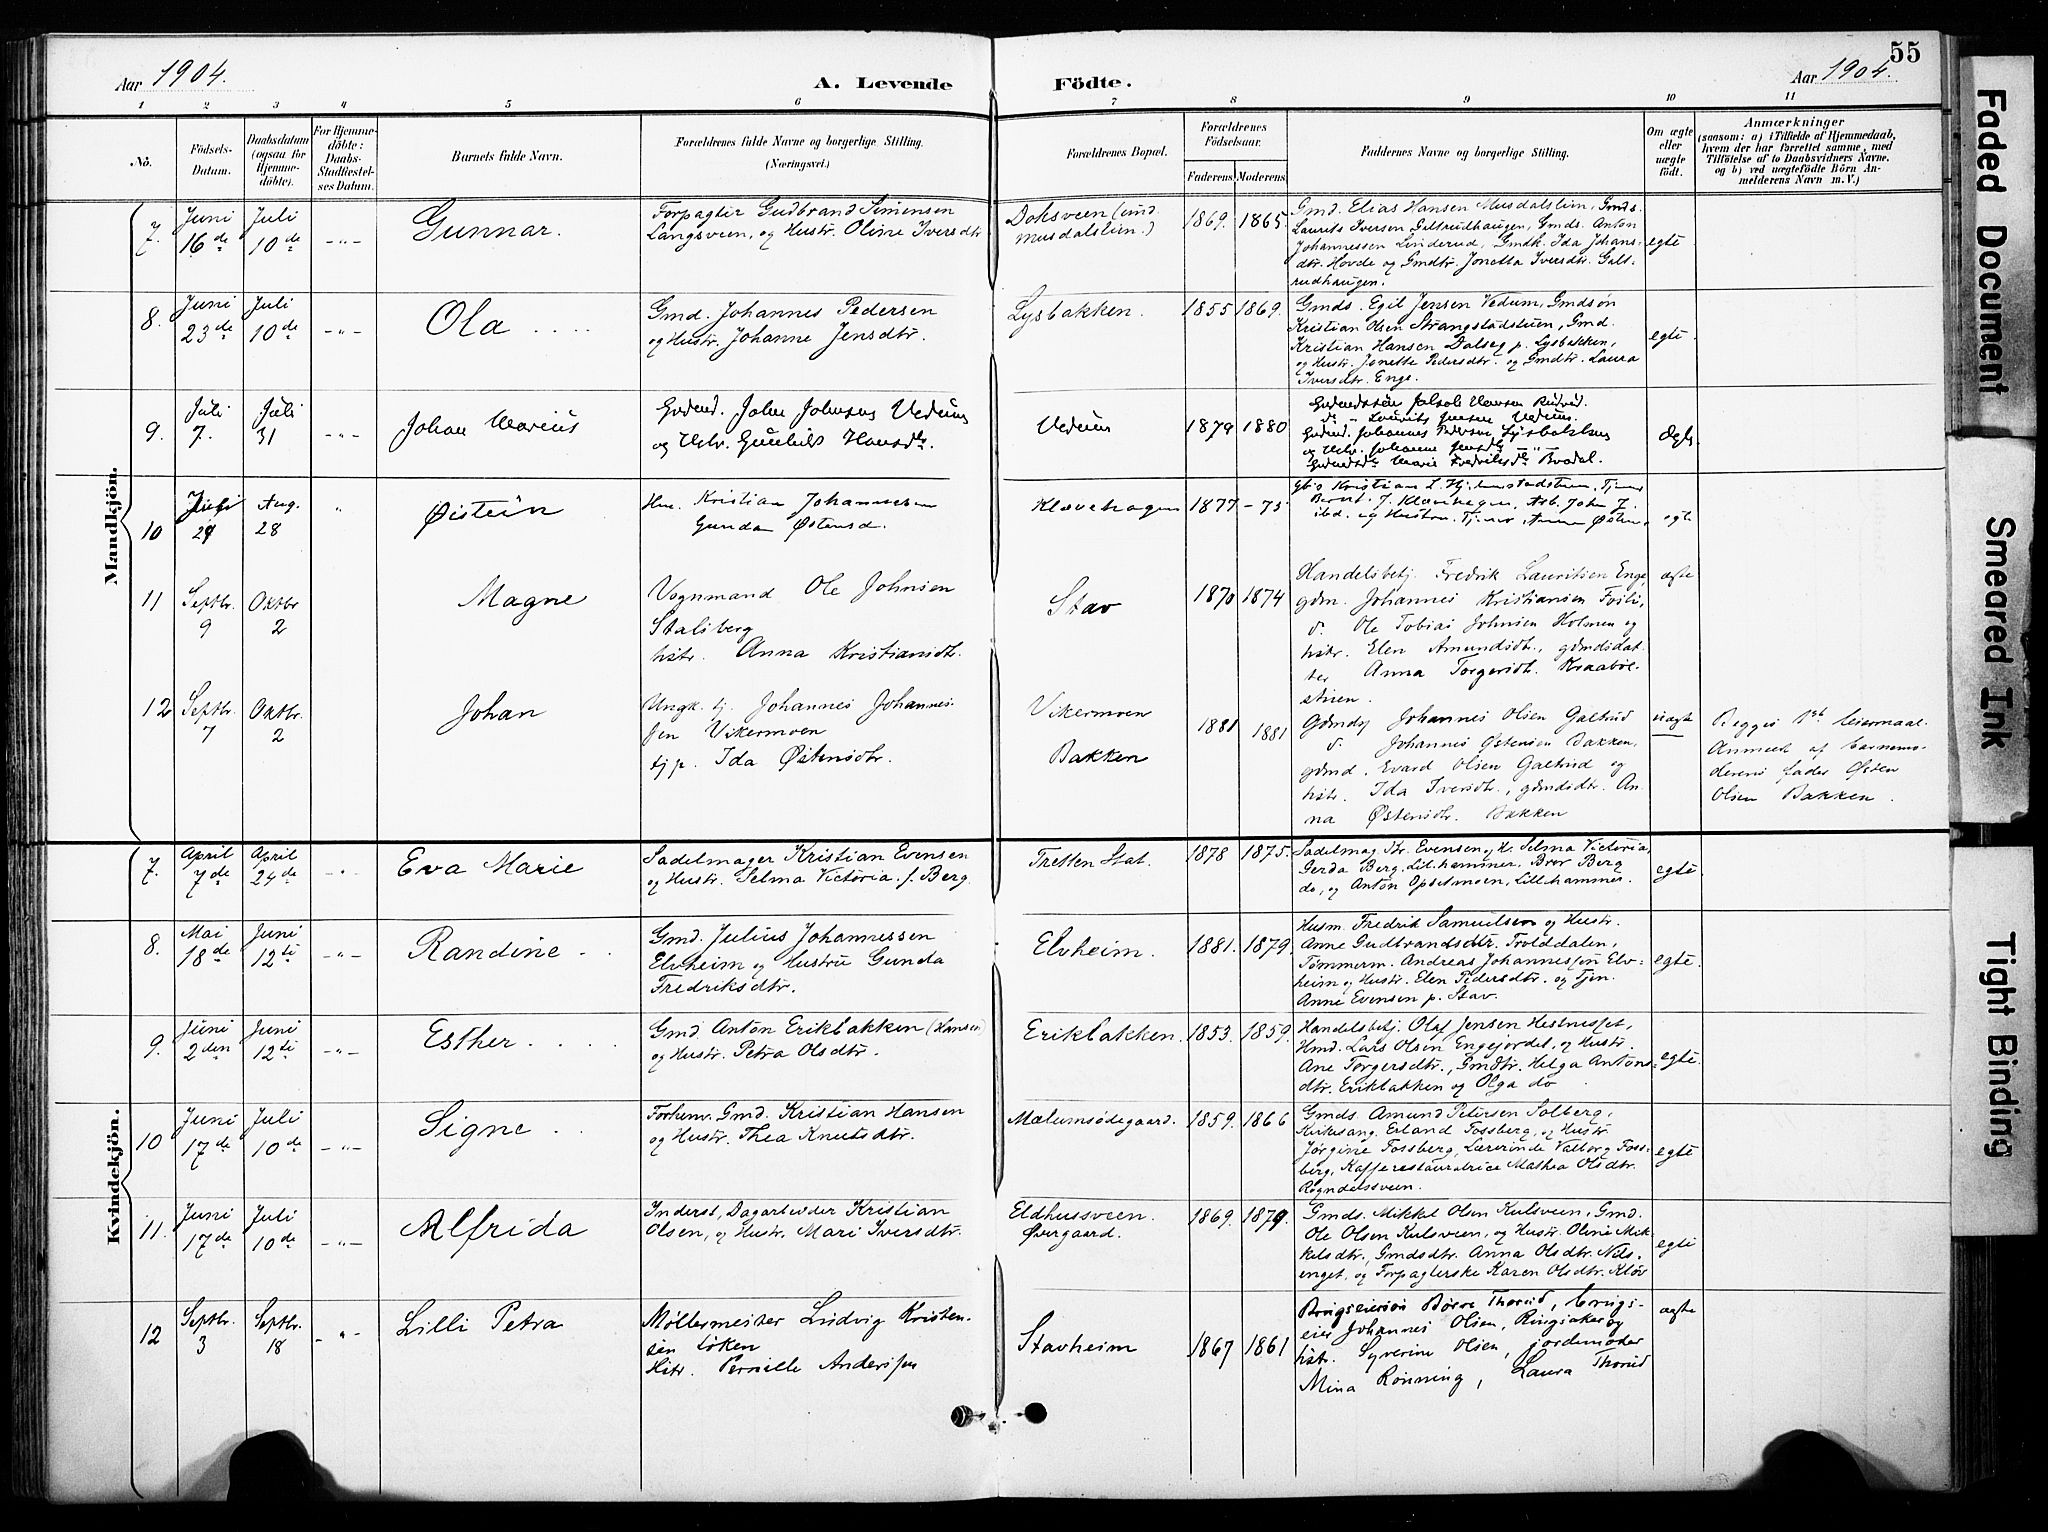 55
Aar 1904.
A. Levende
Födte.
Aar 1904.
1 2 3 4 5 6 7 8 9 10 11
No.
Födsels-
Datum.
Daabsdatum
(ogsaa for
Hjemme-
döbte).
For Hjemme-
döbte:
Daabs-
Stadfæstel-
ses Datum.
Barnets fulde Navn.
Forældrenes fulde Navne og borgerlige Stilling.
(Næringsvei.)
Forældrenes Bopæl.
Forældrenes
Födselsaar.
Faderens Moderens
Faddernes Navne og borgerlige Stilling.
Om ægte
eller
uægte
födt.
Anmærkninger
(saasom: a) i Tilfælde af Hjemmedaab,
hvem der har forrettet samme, med
Tilföielse af to Daabsvidners Navne.
og b) ved uægtefödte Börn An-
melderens Navn m. V.)
Mandkjön.
7. Juni 16 de Juli 10 de -"- Gunnar.
Forpagter Gudbrand Simensen
Langsveen, og Hustr. Oline Iversdtr
Doksveen (und.
Musdalslien.)
1869. 1865.
Gmd. Elias Hansen Musdalslien, Gmds.
Laurits Iversen Galtrudhaugen, Gmds. Anton
Johannessen Linderud, Gmdk. Ida Johans-
dtr. Hovde og Gmdtr. Jonetta Iversdtr. Galt-
rudhaugen.
egte
8. Juni 23 de Juli 10 de -"- Ola ....
Gmd. Johannes Pedersen
og Hustr. Johanne Jensdtr.
Lysbakken.
1855 1869.
Gmds. Egil Jensen Vedum, Gmdsøn
Kristian Olsen Strangstadstuen, Gmd.
Kristian Hansen Dalseg p. Lysbakken,
og Hustr. Jonette Pedersdtr. og Gmdtr. Laura
Iversdtr. Enge.
egte.
9. Juli 7. Juli 31 -"- Johan Marius
Gvdmd. John Johnsen Vedum
og Hstr. Gunhild Hansdtr.
Vedum
1879 1880
Vedum.
Gvdmd. Johannes Pedersen Lysbakken
og Hstr. Johanne Jensdtr
Brodal.
Ægte
10 Juli 29 Aug. 28 " Øistein
Hm. Kristian Johannesen
Gunda Østensd.
Klævehagen
1877 - 75
Kristian L.
Bernt J. Klævehagen, Arb. John J.
ibd. og Hustru
egte
11 Septbr. 9 Oktbr 2 Magne
Vognmand Ole Johnsen
Stalsberg
hstr. Anna Kristiansdt.
Stav
1870 1874
Handelsbetj. Fredrik Lauritsen Enge,
gdm. Johannes Kristiansen Fosli,
d. Ole Tobias Johnsen Holmen og
hstr. Elen Amundsdt., gdmdsdat-
ter Anna Torgersdt. Kraabøl-
stuen.
ægte
12 Septbr. 7 Oktbr. 2 Johan
Ungk. tj. Johannes Johannes-
sen Vikermoen
tj p. Ida Østensdtr.
Vikermoen
Bakken
1881 1881
Gdmds Johannes Olsen Galtrud
d. Johannes Østensen Bakken,
gdmd. Evard Olsen Galtrud og
hstr. Ida Iversdtr., gdmdsdtr. An-
na Østensdtr. Bakken
uægte
Begges 1ste leiermaal.
Anmeldt af barnemo-
derens fader Østen
Olsen Bakken.
Kvindekjön.
7. April 7 de April 24 de -"- Eva Marie
Sadelmager Kristian Evensen
og Hustr. Selma Victoria f. Berg.
Tretten Stat.
1878 1875.
Sadelmag. Kr. Evensen, og H. Selma Victoria,
Gerda Berg, Lillehammer, Bror Berg
do, og Anton Opsetmoen, Lillehammer.
egte.
8. Mai 18 de Juni 12 te -"- Randine ..
Gmd. Julius Johannessen
Elvheim og Hustru Gunda
Fredriksdtr.
Elvheim.
1881. 1879.
Husm. Fredrik Samuelsen og Hustr.
Anne Gudbrandsdtr. Trolddalen,
Tømmerm. Andreas Johannessen Elv-
heim og Hustr. Elen Pedersdtr. og Tjen.
Anne Evensen p. Stav.
egte.
9. Juni 2 den Juni 12 te -"- Esther ....
Gmd Anton Erikbakken (Hansen)
og Hustr. Petra Olsdtr.
Erikbakken.
1853. 1859.
Handelsbetj. Olaf Jensen Hestnesset,
Hmd. Lars Olsen Engejordet, og Hustr.
Ane Torgersdtr., Gmdtr. Helga Antons-
dtr. Erikbakken og Olga do
egte.
10 Juni 17 de Juli 10 de -"- Signe ..
Forhenv. Gmd. Kristian Hansen
og Hustr. Thea Knutsdtr.
Malumsødegaard.
1859. 1866
Gmds. Amund Petersen Solberg,
Kirkesang. Erland Fossberg, og Hustr.
Jørgine Fossberg, Lærerinde Valborg Foss-
berg, Kafferestauratrice Mathea Olsdtr.
Rogndelssveen.
egte.
11. Juni 17 de Juli 10 de -"- Alfrida
Inderst, Dagarbeider Kristian
Olsen, og Hustr. Mari Iversdtr.
Eldhussveen.
Øvergaard.
1869. 1879.
Gmds. Mikkel Olsen Kulsveen, Gmd.
Ole Olsen Kulsveen, og Hustr. Oline Mik-
kelsdtr, Gmdsdtr. Anna Olsdtr. Nils-
enget, og Forpagterske Karen Olsdtr. Kløv
egte
12 Septbr. 3 Septbr. 18 -"- Lilli Petra
Møllermester Ludvig Kristen-
sen Løken
Hstr. Pernille Anderssen
Stavheim
1867 1861
Brugseiersøn Børre Thorud, brugs-
eier Johannes Olsen, Ringsaker og
hstr. Syverine Olsen, jordemoder
Mina Rønning, Laura Thorud
ægte
Faded Document
Smeared Ink
Tight Binding